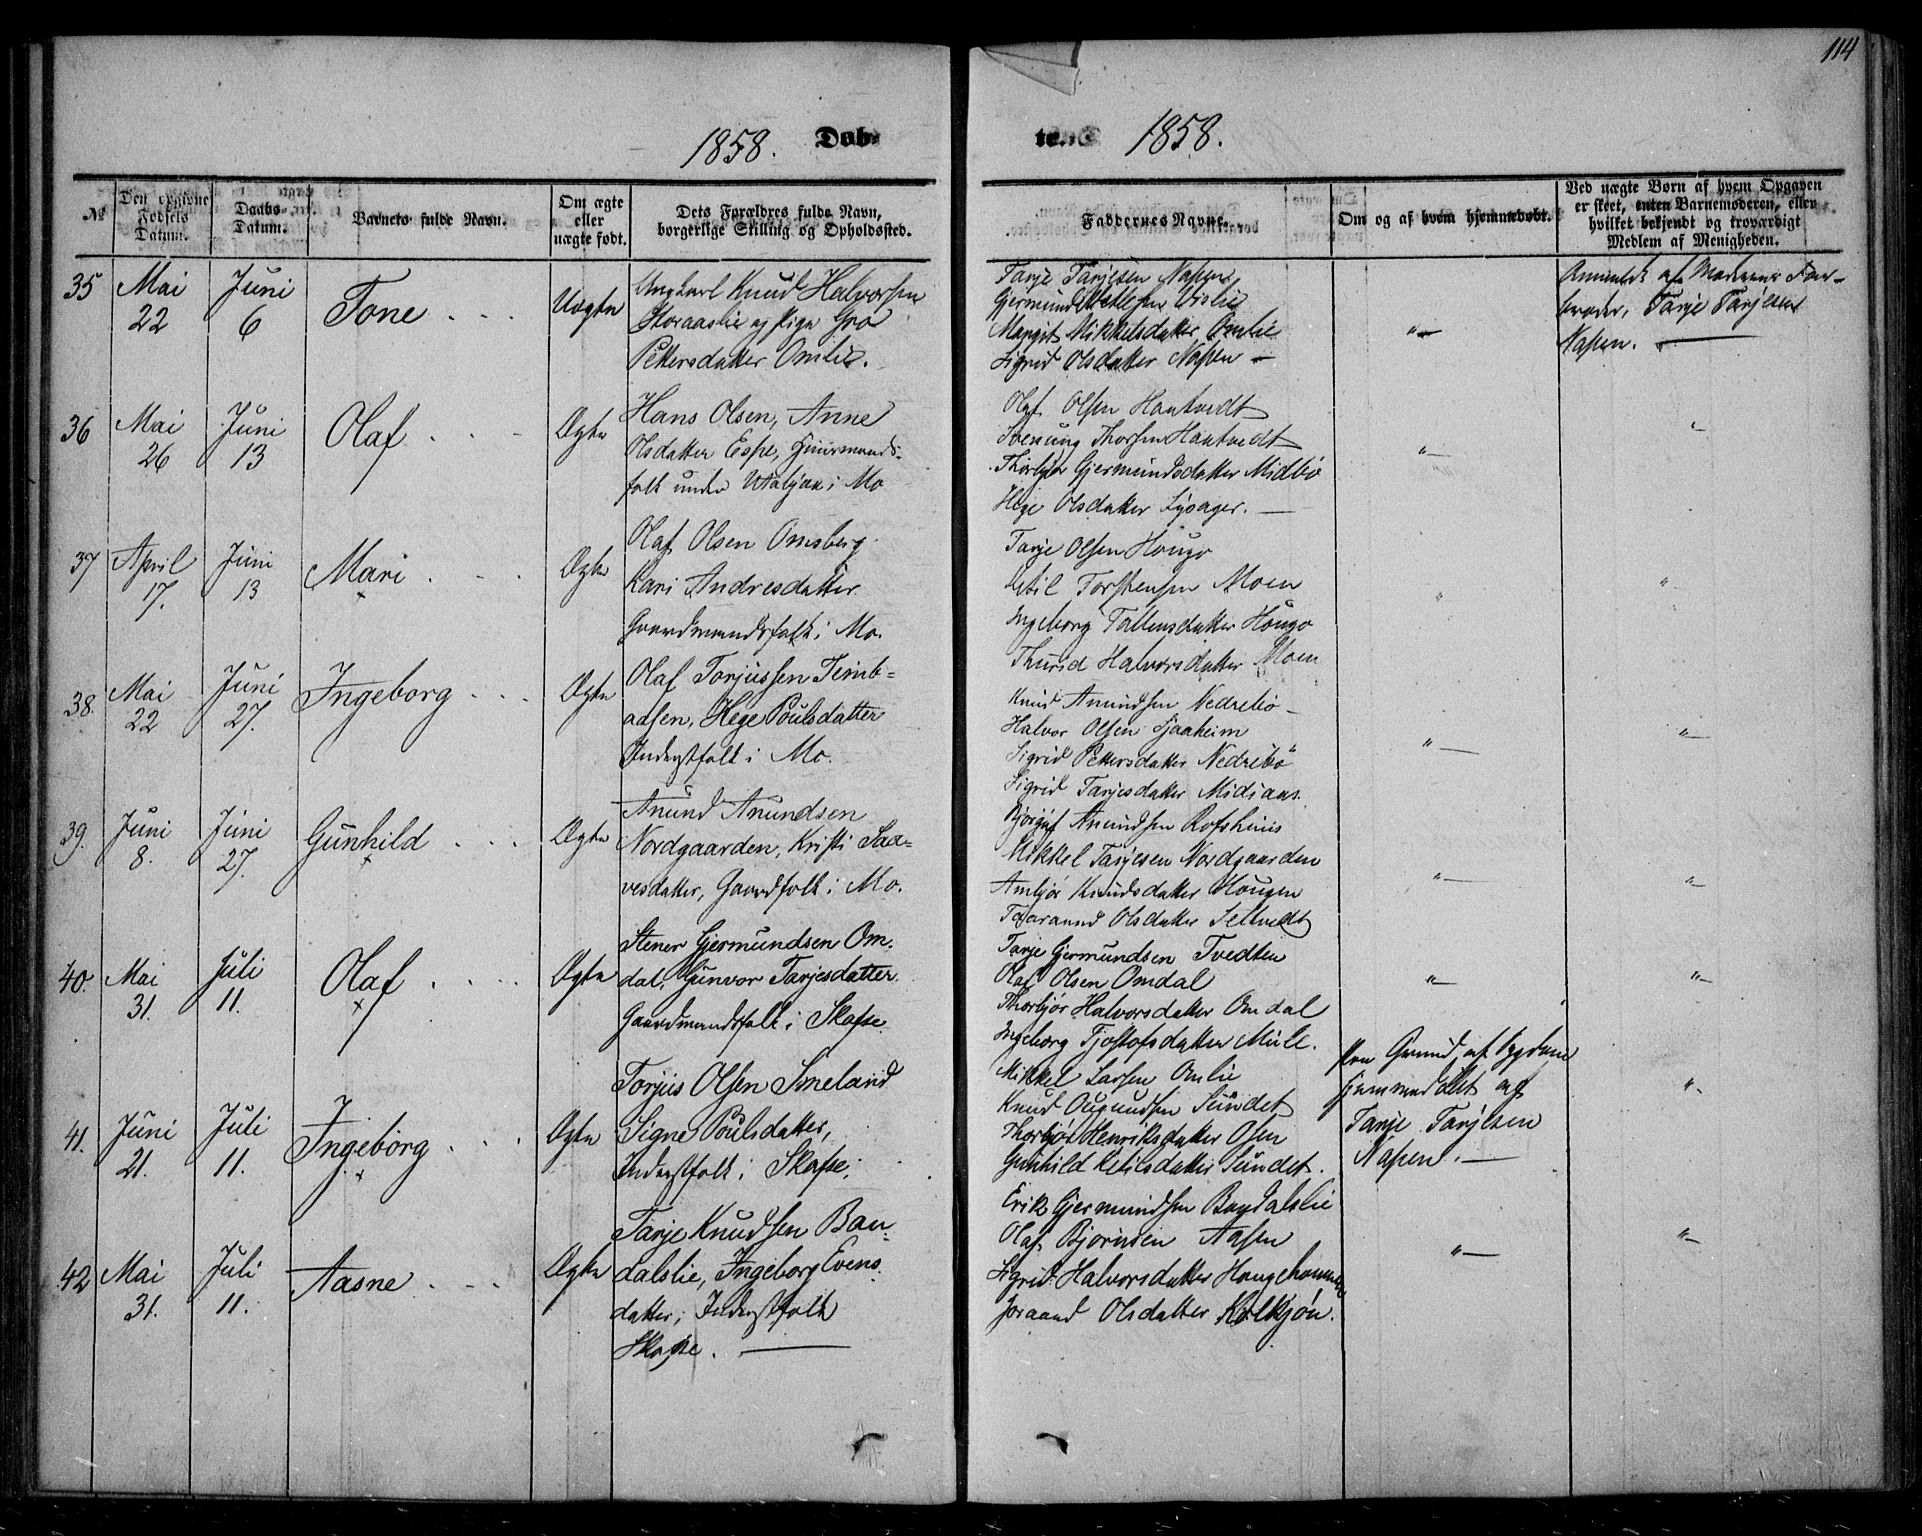 114
1858. Døb-
te. 1858.
№
Den opgivne Fødsels Datum.
Daabs-Datum.
Barnets fulde Navn.
Om ægte eller uægte født.
Dets Forældres fulde Navn, borgerlige Stilling og Opholdssted.
Faddernes Navne.
Om og af hvem hjemmedøbt.
Ved uægte Børn af hvem Opgaven er skeet, enten Barnemoderen, eller hvilket bekjendt og troværdigt Medlem af Menigheden.
35
Mai 22
Juni 6
Tone
Uægte
Ungkarl Knud Halvorsen
Storaaslie og Pige Gro
Pettersdatter Omlie.
Tarje Tarjesen Napen
Gjermund Vislie
Margit Mikkelsdatter Omlie
Sigrid Olsdatter Napen
"
Anmeldt af Moderens Far-
broder, Tarje Tarjesen
Napen.
36
Mai 26
Juni 13
Olaf
Ægte
Hans Olsen, Anne
Olsdatter Espe, Huusmands-
folk under i Mo
Olaf Olsen Hantvedt
Svenung Thorsen Hantvedt
Thorbjør Gjermundsdatter Midbø
Hege Olsdatter Lysager.
"
"
37
April 17.
Juni 13
Mari
Ægte
Olaf Olsen Omsberg
Kari Andresdatter
Gaardmandsfolk i Mo.
Tarje Olsen Hougo
Ketil Torstensen Moen
Ingeborg Tallensdatter Hougo
Thurid Halvorsdatter Moen
"
"
38.
Mai 22
Juni 27.
Ingeborg
Ægte
Olaf Torjussen Timb-
adsen, Hege Poulsdatter
Inderstfolk i Mo.
Knud Anundsen Nedrebø
Halvor Olsen Tjaaheim
Sigrid Pettersdatter Nedrebø
Sigrid Tarjesdatter Midiaas.
"
"
39.
Juni 8.
Juni 27.
Gunhild
Ægte
Anund Anundsen
Nordgaarden, Kristi Saa-
vesdatter, Gaardfolk i Mo.
Bjørgulf Anundsen Rofshuus
Mikkel Tarjesen Nordgaarden
Ambjør Knudsdatter Hougen
Taarand Olsdatter Seltvedt
"
"
40.
Mai 31.
Juli 11.
Olaf
Ægte
Stener Gjermundsen Om-
dal, Gunvor Tarjesdatter
Gaardmandsfolk i Skafse
Tarje Gjermundsen Tvedten
Olaf Olsen Omdal
Thorbjør Halvorsdatter Omdal
Ingeborg Tjostofsdatter Mule.
"
"
41.
Juni 21.
Juli 11.
Ingeborg
Ægte
Torjus Olsen Smeland
Signe Poulsdatter,
Inderstfolk i Skafse.
Mikkel Larsen Omlie
Knud Ougundsen Sundet
Thorbjør Henriksdatter Osen
Gunhild Ketilsdatter Sundet.
Paa Grund af Sygdom
hjemmedøbt af
Tarje Tarjesen
Napen.
"
42
Mai 31.
Juli 11.
Aasne
Ægte
Tarje Knudsen Ban-
dalslie, Ingeborg Evens-
datter, Inderstfolk
Skafse.
Erik Gjermundsen Bandalslie
Olaf Bjørnsen Aasen
Sigrid Halvorsdatter
Joraand Olsdatter Kolkjøn.
"
"